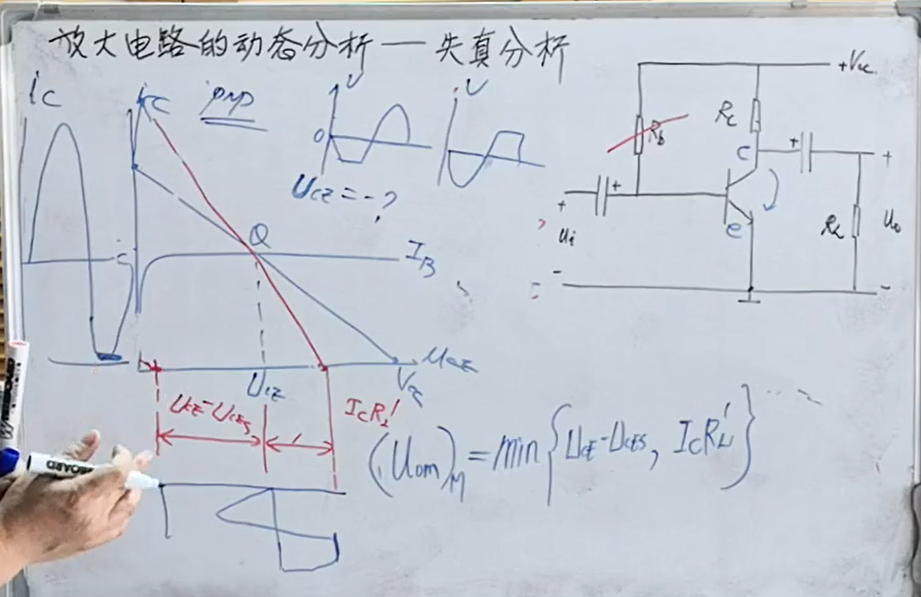 放大电路的动态分析 — 失真分析
iC
iC
PNP
U
U
0
UCE = - ?
Q
IB
UCE
UCE
VCC
UCE-UCES
ICRL'
(Uom)M = min{UCE-UCES, ICRL'}
+Vcc
Rb
Rc
c
e
+
+
+
ui
-
RL
+
Uo
-
BOARD